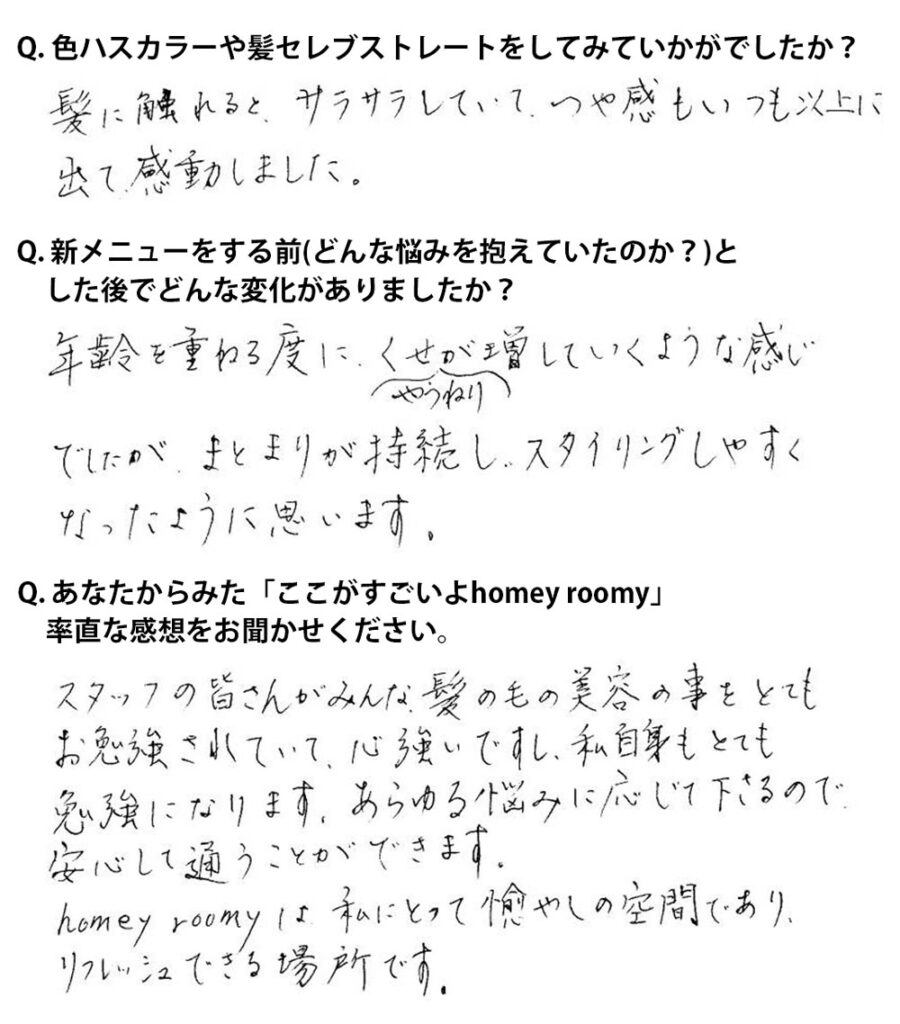 Q. 色ハスカラーや髪セレブストレートをしてみていかがでしたか？
髪に触れると、サラサラしていて、つや感もいつも以上に
出て、感動しました。
Q. 新メニューをする前(どんな悩みを抱えていたのか？)と
した後でどんな変化がありましたか？
年齢を重ねる度に、くせが増していくような感じ
やうねり
でしたが、まとまりが持続し、スタイリングしやすく
なったように思います。
Q. あなたからみた「ここがすごいよhomey roomy」
率直な感想をお聞かせください。
スタッフの皆さんがみんな、髪のもの美容の事をとても
お勉強されていて、心強いですし、私自身もとても
勉強になります。あらゆる悩みに応じて下さるので、
安心して通うことができます。
homey roomyは、私にとって癒やしの空間であり、
リフレッシュできる場所です。